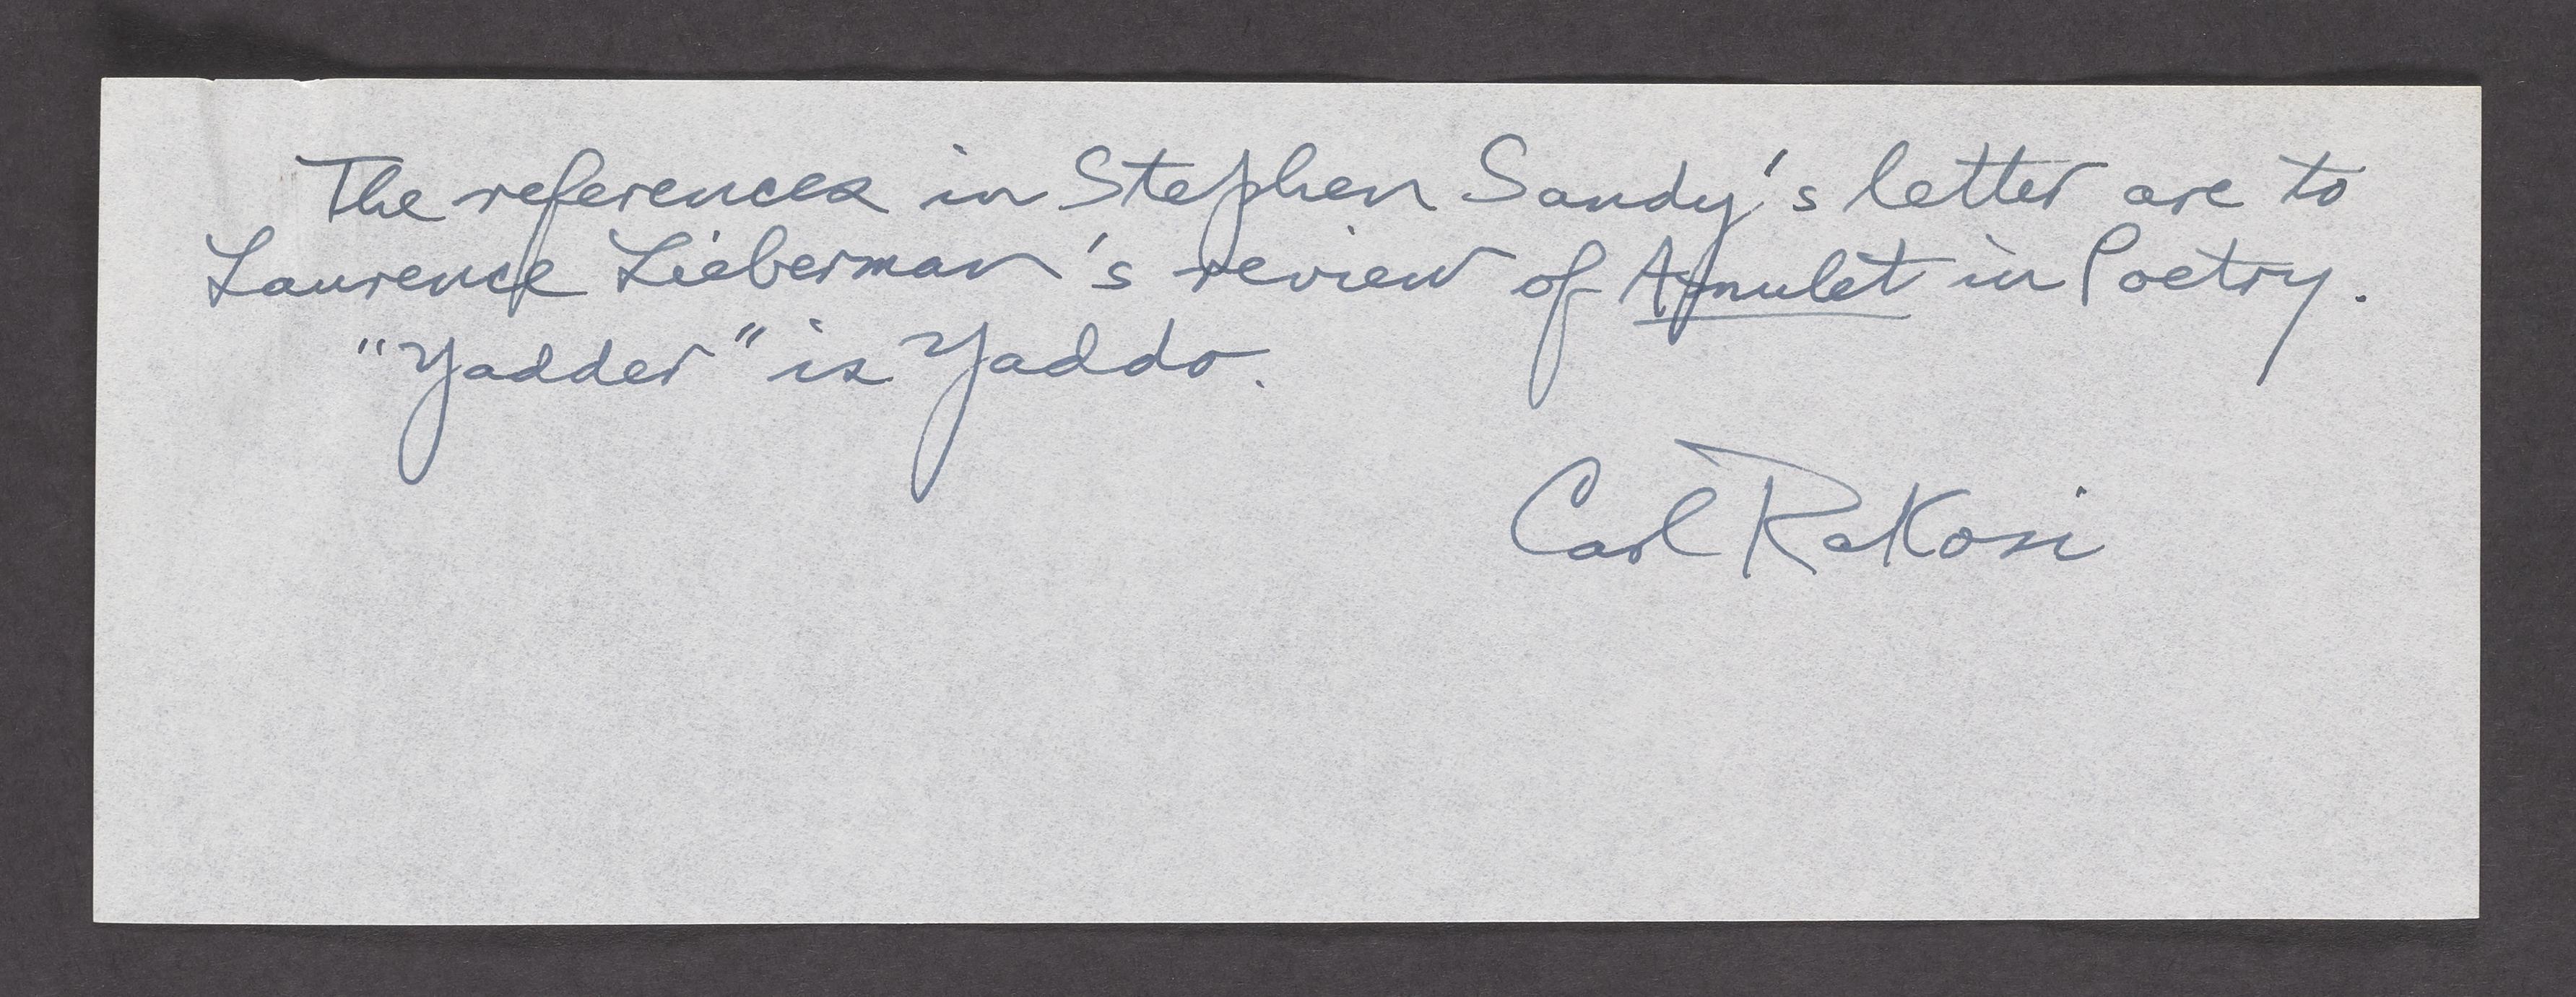 The references in Stephen Sandy's letter are to
Laurence Lieberman's review of Amulet in Poetry.
"Yadder" is Yaddo.
Carl Rakosi